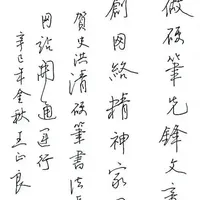 做硬筆先鋒文
創网絡精神家
賀史洪清硬筆書法
网站開通運行
辛巳年金秋王正良